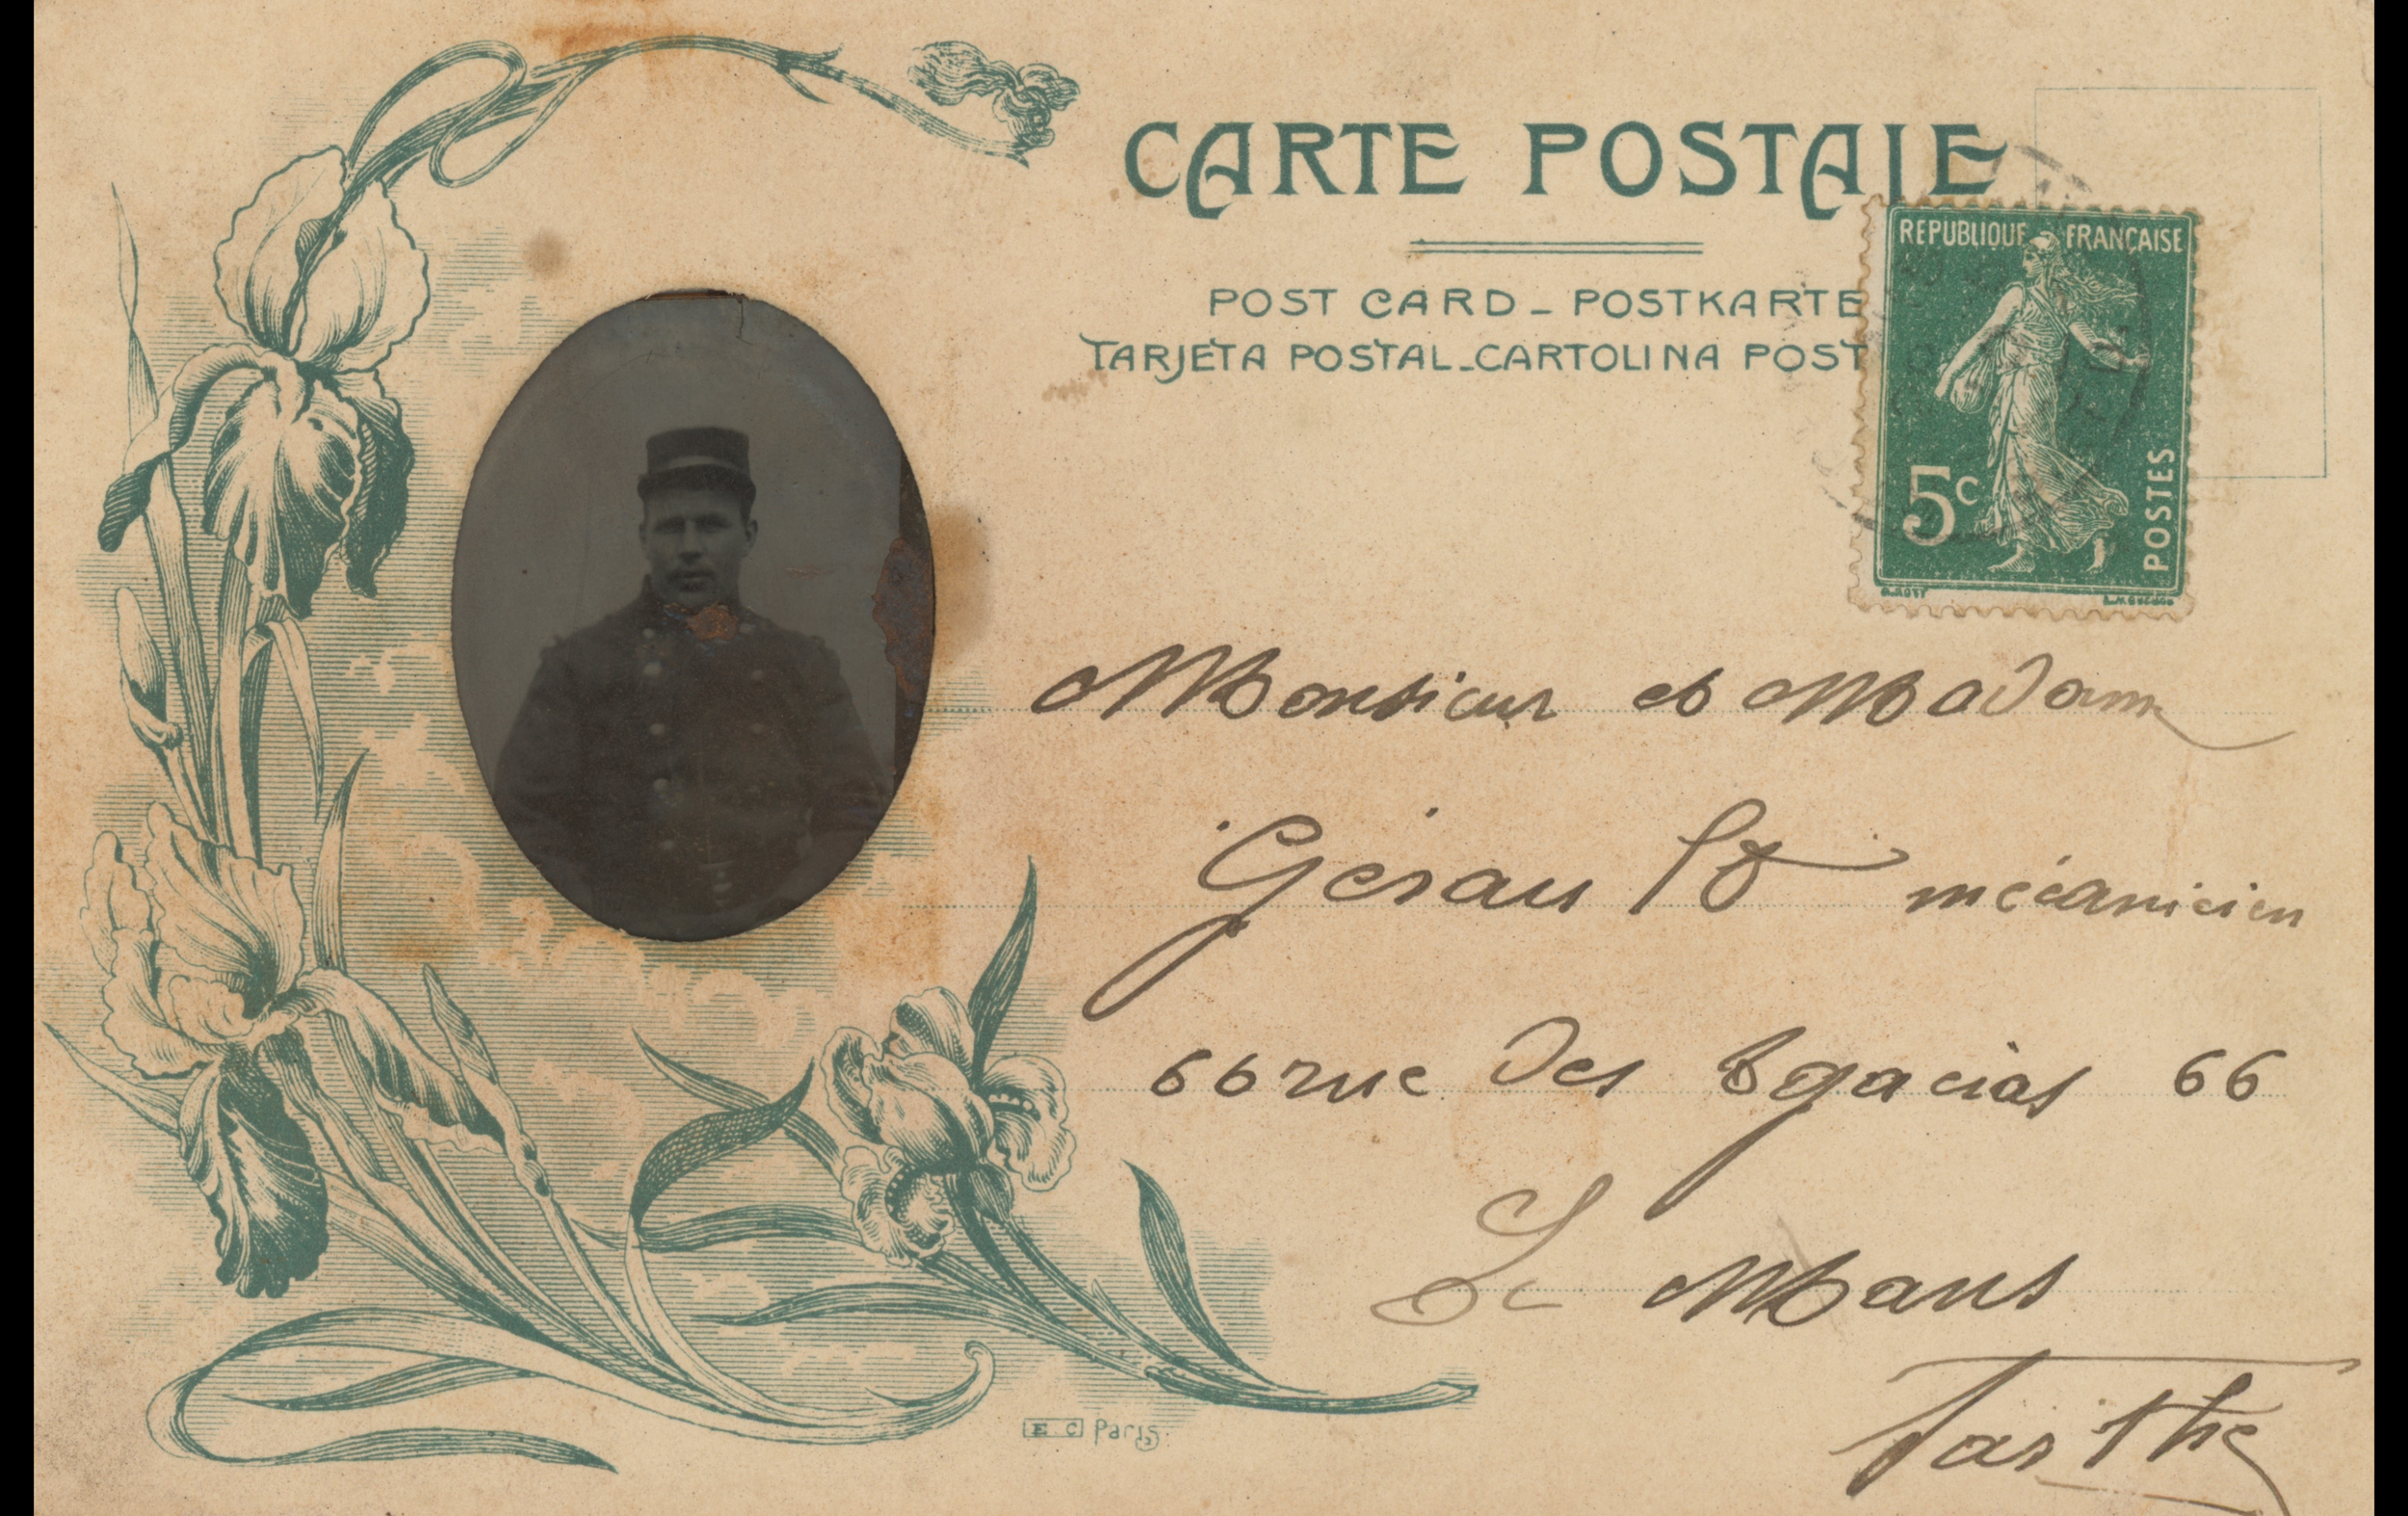 CARTE POSTALE
POST CARD _ POSTKARTE
TARJETA POSTAL_CARTOLINA POST
REPUBLIQUE FRANÇAISE
5c
POSTES
Monsieur et Madame
mécanicien
66 rue des 66
Le Mans
Sarthe
E C Paris